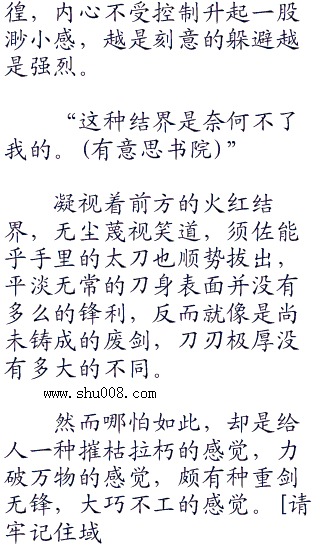 徨，内心不受控制升起一股
渺小感，越是刻意的躲避越
是强烈。
“这种结界是奈何不了
我的。(有意思书院)”
凝视着前方的火红结
界，无尘蔑视笑道，须佐能
乎手里的太刀也顺势拔出，
平淡无常的刀身表面并没有
多么的锋利，反而就像是尚
未铸成的废剑，刀刃极厚没
有多大的不同。
www.shu008.com
然而哪怕如此，却是给
人一种摧枯拉朽的感觉，力
破万物的感觉，颇有种重剑
无锋，大巧不工的感觉。[请
牢记住域